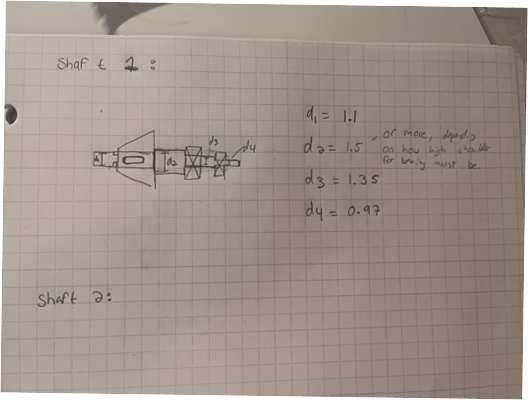 Shaft 1:
d1 = 1.1
d2 = 1.5, or more, depending
on how high shoulder
for bearing must be
d3 = 1.35
d4 = 0.97
d3
d4
d2
Shaft 2: